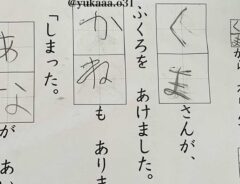 @yukaaa.o31
から
くまさんが、
ふくろを あけました。
かねも ありま
「しまった。
あなが あい